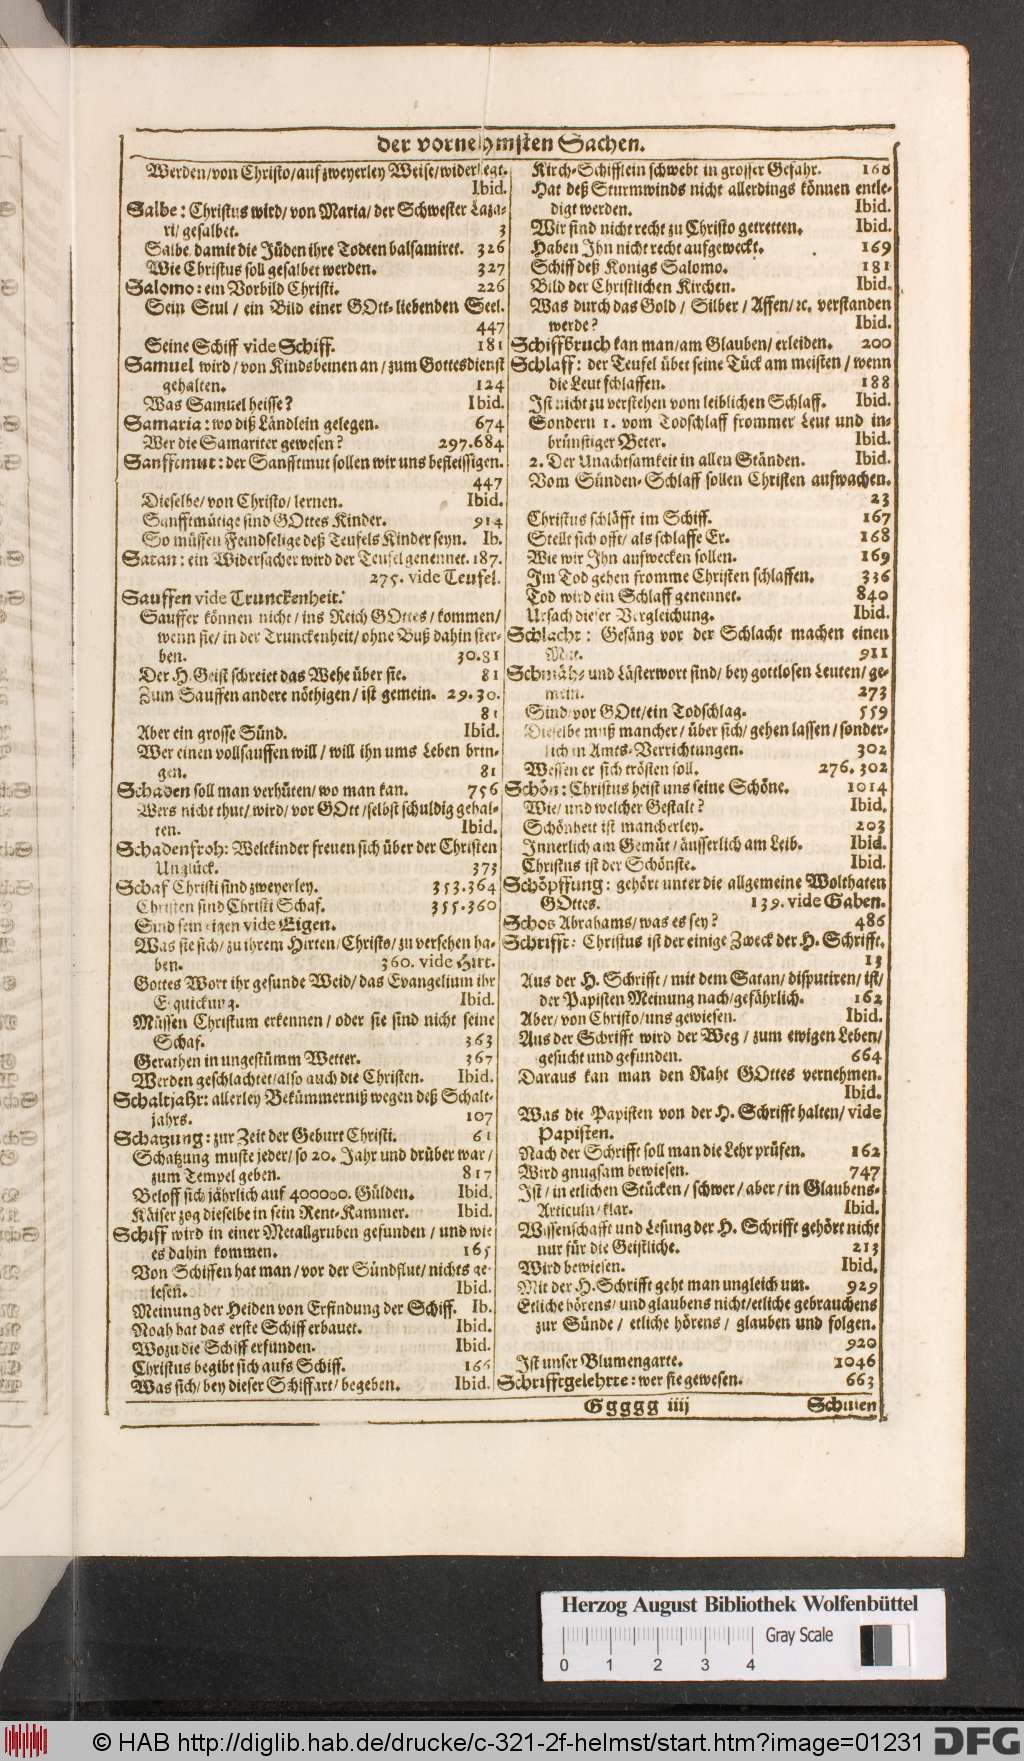 der vornehmsten Sachen.
Werden/von Christo/auf zweyerley Weise/widerlegt.
Ibid.
Salbe: Christus wird/ von Maria/ der Schwester Laza-
ri/ gesalbet. 3
Salbe, damit die Jüden ihre Todten balsamiret. 326
Wie Christus soll gesalbet werden. 327
Salomo: ein Vorbild Christi. 226
Sein Stul / ein Bild einer GOtt-liebenden Seel.
447
Seine Schiff vide Schiff. 181
Samuel wird/ von Kindsbeinen an / zum Gottesdienst
gehalten. 124
Was Samuel heisse? Ibid.
Samaria: wo diß Ländlein gelegen. 674
Wer die Samariter gewesen? 297.684
Sanfftmut: der Sanfftmut sollen wir uns befleissigen.
447
Dieselbe/ von Christo/ lernen. Ibid.
Sanfftmütige sind GOttes Kinder. 914
So müssen Feindselige deß Teufels Kinder seyn. Ib.
Satan: ein Widersacher wird der Teufel genennet. 187.
275. vide Teufel.
Sauffen vide Trunckenheit.
Sauffer können nicht/ ins Reich GOttes / kommen/
wenn sie/ in der Trunckenheit/ ohne Buß dahin ster-
ben. 30.81
Der H. Geist schreiet das Wehe über sie. 81
Zum Sauffen andere nöthigen / ist gemein. 29.30.
81
Aber ein grosse Sünd. Ibid.
Wer einen vollsauffen will / will ihn ums Leben brin-
gen. 81
Schaden soll man verhüten/ wo man kan. 756
Wers nicht thut/ wird/ vor GOtt /selbst schuldig gehal-
ten. Ibid.
Schadenfroh: Weltkinder freuen sich über der Christen
Unglück. 373
Schaf Christi sind zweyerley. 353.364
Christen sind Christi Schaf. 355.360
Sind sein eigen vide Eigen.
Was sie sich/ zu ihrem Hirten/ Christo/ zu versehen ha-
ben. 360. vide Hirt.
Gottes Wort ihr gesunde Weid/ das Evangelium ihr
Erquickung. Ibid.
Müssen Christum erkennen / oder sie sind nicht seine
Schaf. 363
Gerathen in ungestümm Wetter. 367
Werden geschlachtet/also auch die Christen. Ibid.
Schaltjahr: allerley Bekümmerniß wegen deß Schalt-
jahrs. 107
Schatzung: zur Zeit der Geburt Christi. 61
Schatzung muste jeder/ so 20. Jahr und drüber war /
zum Tempel geben. 817
Beloff sich jährlich auf 400000. Gülden. Ibid.
Käiser zog dieselbe in sein Rent-Kammer. Ibid.
Schiff wird in einer Metallgruben gefunden / und wie
es dahin kommen. 165
Von Schiffen hat man / vor der Sündflut/ nichts ge-
lesen. Ibid.
Meinung der Heiden von Erfindung der Schiff. Ib.
Noah hat das erste Schiff erbauet. Ibid.
Wozu die Schiff erfunden. Ibid.
Christus begibt sich aufs Schiff. 166
Was sich/ bey dieser Schiffart/ begeben. Ibid.
Kirch-Schifflein schwebt in grosser Gefahr. 168
Hat deß Sturmwinds nicht allerdings können entle-
digt werden. Ibid.
Wir sind nicht recht zu Christo getretten. Ibid.
Haben Ihn nicht recht aufgeweckt. 169
Schiff deß Konigs Salomo. 181
Bild der Christlichen Kirchen. Ibid.
Was durch das Gold / Silber / Affen/ ꝛc. verstanden
werde? Ibid.
Schiffbruch kan man/ am Glauben/ erleiden. 200
Schlaff: der Teufel übet seine Tück am meisten / wenn
die Leut schlaffen. 188
Ist nicht zu verstehen vom leiblichen Schlaff. Ibid.
Sondern 1. vom Todschlaff frommer Leut und in-
brünstiger Beter. Ibid.
2. Der Unachtsamkeit in allen Ständen. Ibid.
Vom Sünden-Schlaff sollen Christen aufwachen.
23
Christus schläfft im Schiff. 167
Stellt sich offt/ als schlaffe Er. 168
Wie wir Ihn aufwecken sollen. 169
Im Tod gehen fromme Christen schlaffen. 336
Tod wird ein Schlaff genennet. 840
Ursach dieser Vergleichung. Ibid.
Schlacht: Gesäng vor der Schlacht machen einen
Mut. 911
Schmäh- und Lästerwort sind/ bey gottlosen Leuten/ ge-
mein. 273
Sind/vor GOtt/ein Todschlag. 559
Dieselbe muß mancher / über sich/ gehen lassen / sonder-
lich in Amts-Verrichtungen. 302
Wessen er sich trösten soll. 276.302
Schön: Christus heist uns seine Schöne. 1014
Wie/ und welcher Gestalt? Ibid.
Schönheit ist mancherley. 203
Innerlich am Gemüt / äusserlich am Leib. Ibid.
Christus ist der Schönste. Ibid.
Schöpffung: gehört unter die allgemeine Wolthaten
GOttes. 139. vide Gaben.
Schos Abrahams/ was es sey? 486
Schrifft: Christus ist der einige Zweck der H. Schrifft.
13
Aus der H. Schrifft / mit dem Satan/ disputiren/ ist/
der Papisten Meinung nach/gefährlich. 162
Aber/ von Christo/ uns gewiesen. Ibid.
Aus der Schrifft wird der Weg / zum ewigen Leben/
gesucht und gefunden. 664
Daraus kan man den Raht GOttes vernehmen.
Ibid.
Was die Papisten von der H. Schrifft halten/ vide
Papisten.
Nach der Schrifft soll man die Lehr prüfen. 162
Wird gnugsam bewiesen. 747
Ist/ in etlichen Stücken / schwer / aber / in Glaubens-
Articuln/ klar. Ibid.
Wissenschafft und Lesung der H. Schrifft gehört nicht
nur für die Geistliche. 213
Wird bewiesen. Ibid.
Mit der H. Schrifft geht man ungleich um. 929
Etliche hörens/ und glaubens nicht/etliche gebrauchens
zur Sünde / etliche hörens / glauben und folgen.
920
Ist unser Blumengarte. 1046
Schrifftgelehrte: wer sie gewesen. 663
Ggggg iiij Schulen
Herzog August Bibliothek Wolfenbüttel
Gray Scale
0 1 2 3 4
© HAB http://diglib.hab.de/drucke/c-321-2f-helmst/start.htm?image=01231 DFG